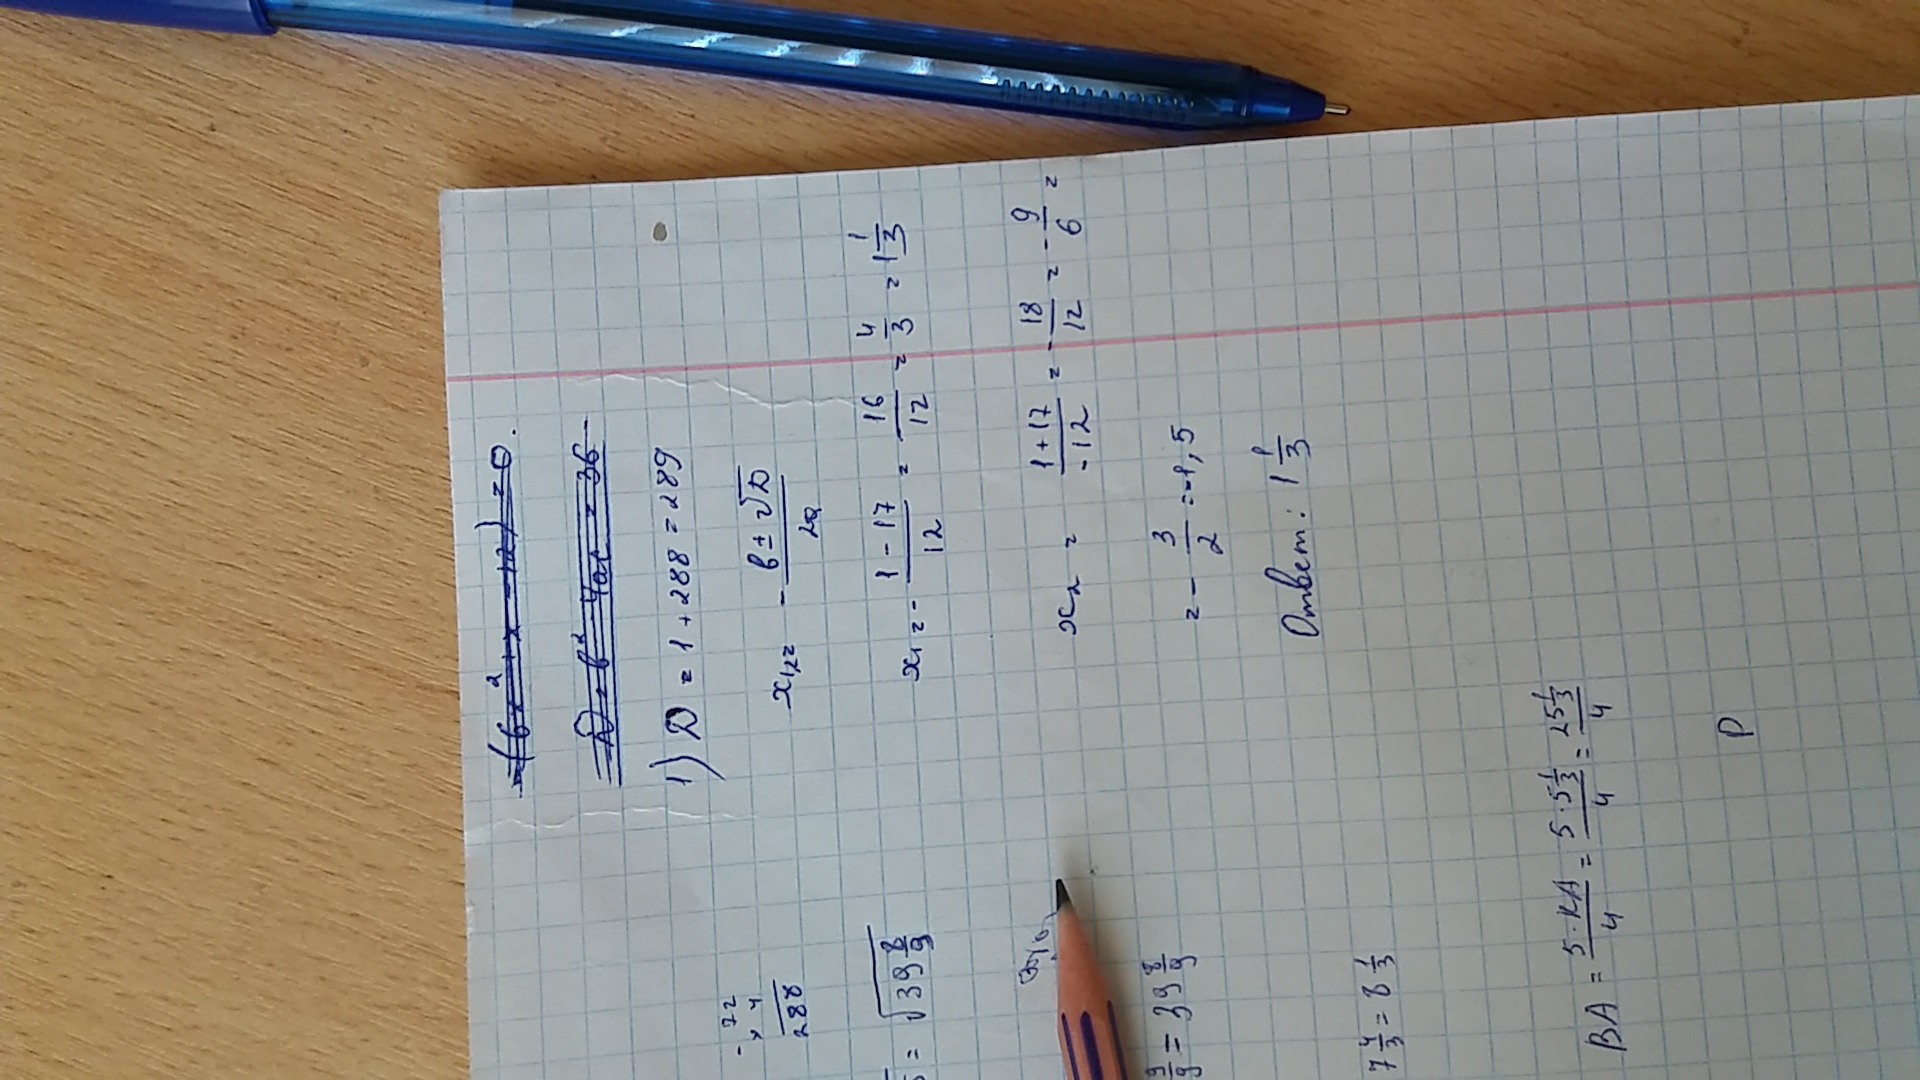 1) D = 1 + 288 = 289
x₁,₂ = - b ± √D / 2a
x₁ = - 1 - 17 / 12 = 16/12 = 4/3 = 1 1/3
x₂ = 1 + 17 / -12 = - 18/12 = - 9/6 =
= - 3/2 = -1,5
Ответ: 1 1/3
72
× 4
288
= √39 8/9
= 39 8/9
7 4/3 = 8 1/3
BA = 5 · KA / 4 = 5 · 5 1/3 / 4 = 25 1/3 / 4
P